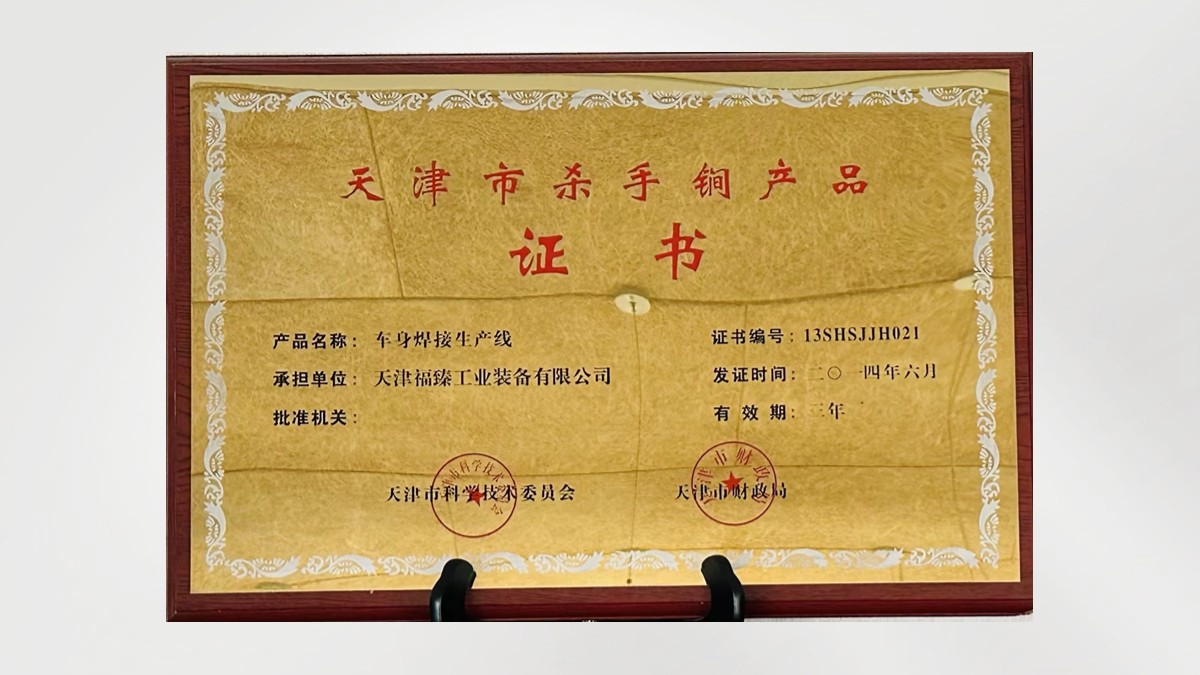 天津市杀手锏产品
证书
产品名称：车身焊接生产线
承担单位：天津福臻工业装备有限公司
批准机关：
证书编号：13SHSJJH021
发证时间：二〇一四年六月
有效期：三年
天津市科学技术委员会
天津市财政局